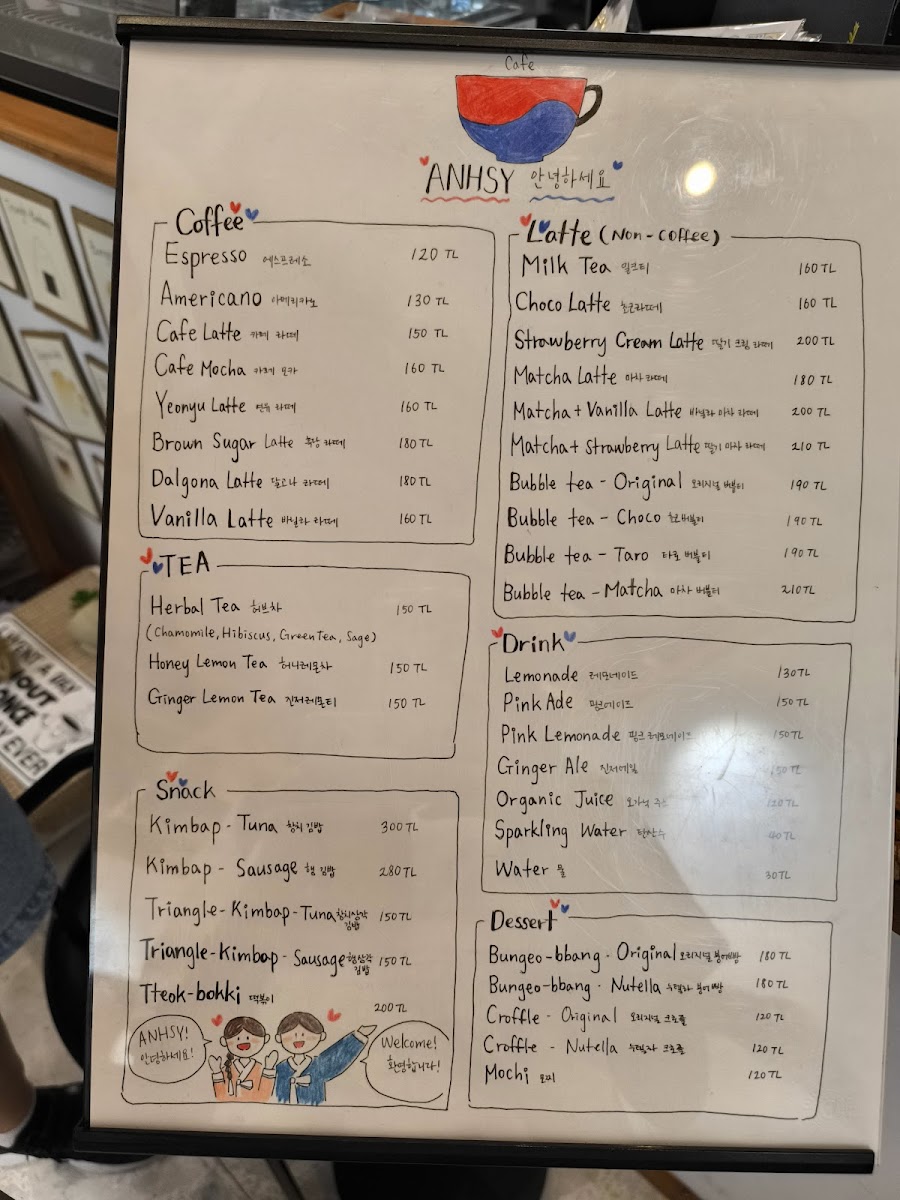 Cafe
ANHSY 안녕하세요
Coffee
Espresso 에스프레소 120 TL
Americano 아메리카노 130 TL
Cafe Latte 카페 라떼 150 TL
Cafe Mocha 카페 모카 160 TL
Yeonyu Latte 연유 라떼 160 TL
Brown Sugar Latte 흑당 라떼 180 TL
Dalgona Latte 달고나 라떼 180 TL
Vanilla Latte 바닐라 라떼 160 TL
TEA
Herbal Tea 허브차 150 TL
(Chamomile, Hibiscus, Green Tea, Sage)
Honey Lemon Tea 허니레몬차 150 TL
Ginger Lemon Tea 진저레몬티 150 TL
Snack
Kimbap - Tuna 참치 김밥 300 TL
Kimbap - Sausage 햄 김밥 280 TL
Triangle-Kimbap-Tuna 참치삼각김밥 150 TL
Triangle-Kimbap-Sausage 햄삼각김밥 150 TL
Tteok-bokki 떡볶이 200 TL
ANHSY!
안녕하세요!
Welcome!
환영합니다!
Latte (Non-coffee)
Milk Tea 밀크티 160 TL
Choco Latte 초코라떼 160 TL
Strawberry Cream Latte 딸기 크림 라떼 200 TL
Matcha Latte 마차 라떼 180 TL
Matcha + Vanilla Latte 바닐라 마차 라떼 200 TL
Matcha + Strawberry Latte 딸기 마차 라떼 210 TL
Bubble tea - Original 오리지널 버블티 190 TL
Bubble tea - Choco 초코버블티 190 TL
Bubble tea - Taro 타로 버블티 190 TL
Bubble tea - Matcha 마차 버블티 210 TL
Drink
Lemonade 레모네이드 130 TL
Pink Ade 핑크에이드 150 TL
Pink Lemonade 핑크 레모네이드 150 TL
Ginger Ale 진저에일 150 TL
Organic Juice 오가닉 주스 120 TL
Sparkling Water 탄산수 40 TL
Water 물 30 TL
Dessert
Bungeo-bbang - Original 오리지널 붕어빵 180 TL
Bungeo-bbang - Nutella 누텔라 붕어빵 180 TL
Croffle - Original 오리지널 크로플 120 TL
Croffle - Nutella 누텔라 크로플 120 TL
Mochi 모찌 120 TL